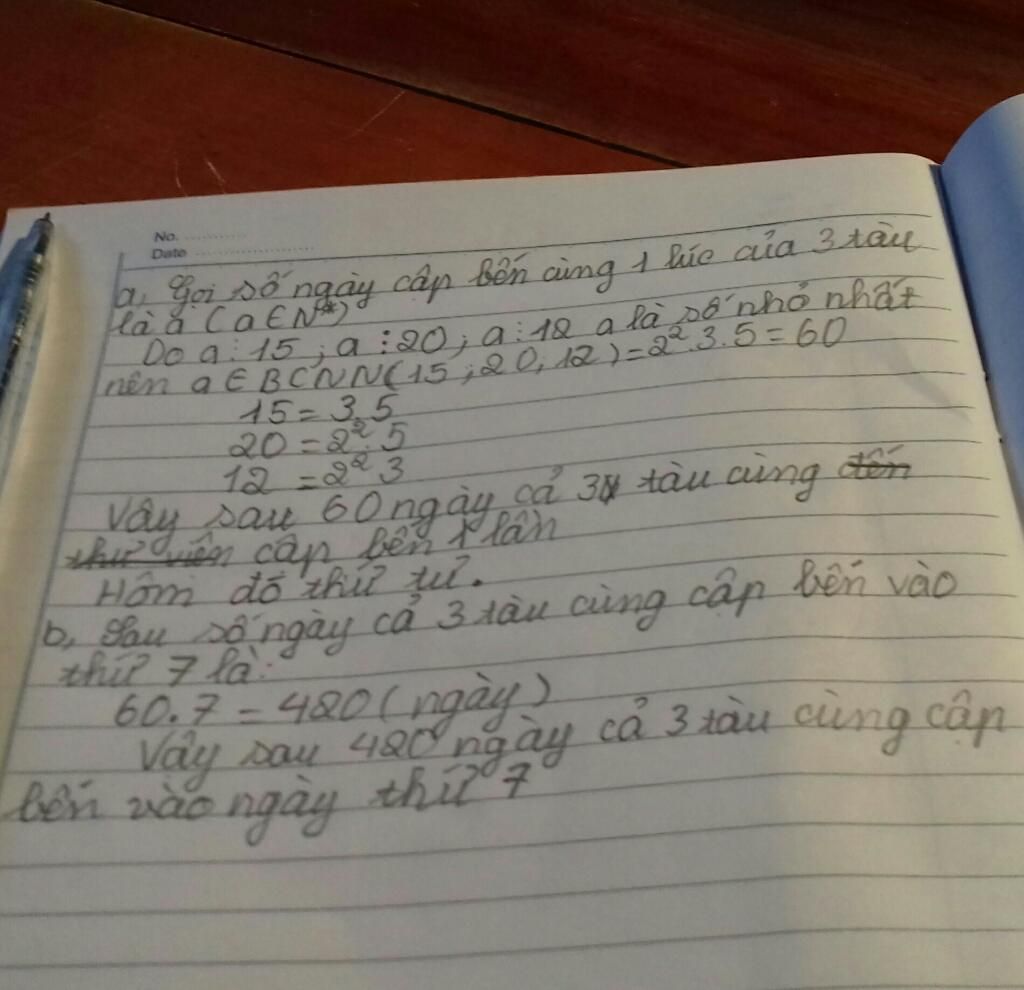 No. ............
Date ........................
a, Gọi số ngày cập bến cùng 1 lúc của 3 tàu
là a (a ∈ N*)
Do a ⋮ 15 ; a ⋮ 20 ; a ⋮ 12 a là số nhỏ nhất
nên a ∈ BCNN(15 ; 20, 12) = 2².3.5 = 60
15 = 3.5
20 = 2².5
12 = 2² 3
Vậy sau 60 ngày cả 3 tàu cùng đến
thư viện cập bến 1 lần
Hôm đó thứ tư.
b, Sau số ngày cả 3 tàu cùng cập bến vào
thứ 7 là:
60.7 = 480 (ngày)
Vậy sau 480 ngày cả 3 tàu cùng cập
bến vào ngày thứ 7